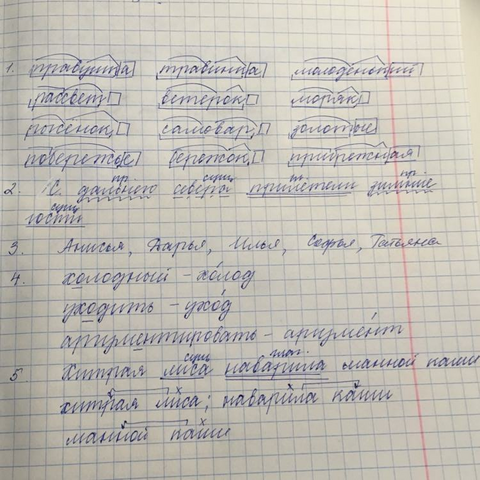 1. травушка травинка молоденький
рассвет ветерок моряк
рожёнок самовар золотые
побережье бережок прибрежная
2. С дальнего севера прилетели зимние
гости
3. Анисья, Дарья, Илья, Софья, Татьяна
4. холодный - холод
уходить - уход
аргументировать - аргумент
5. Хитрая лиса наварила манной каши
хитрая лиса; наварила каши
манной каши